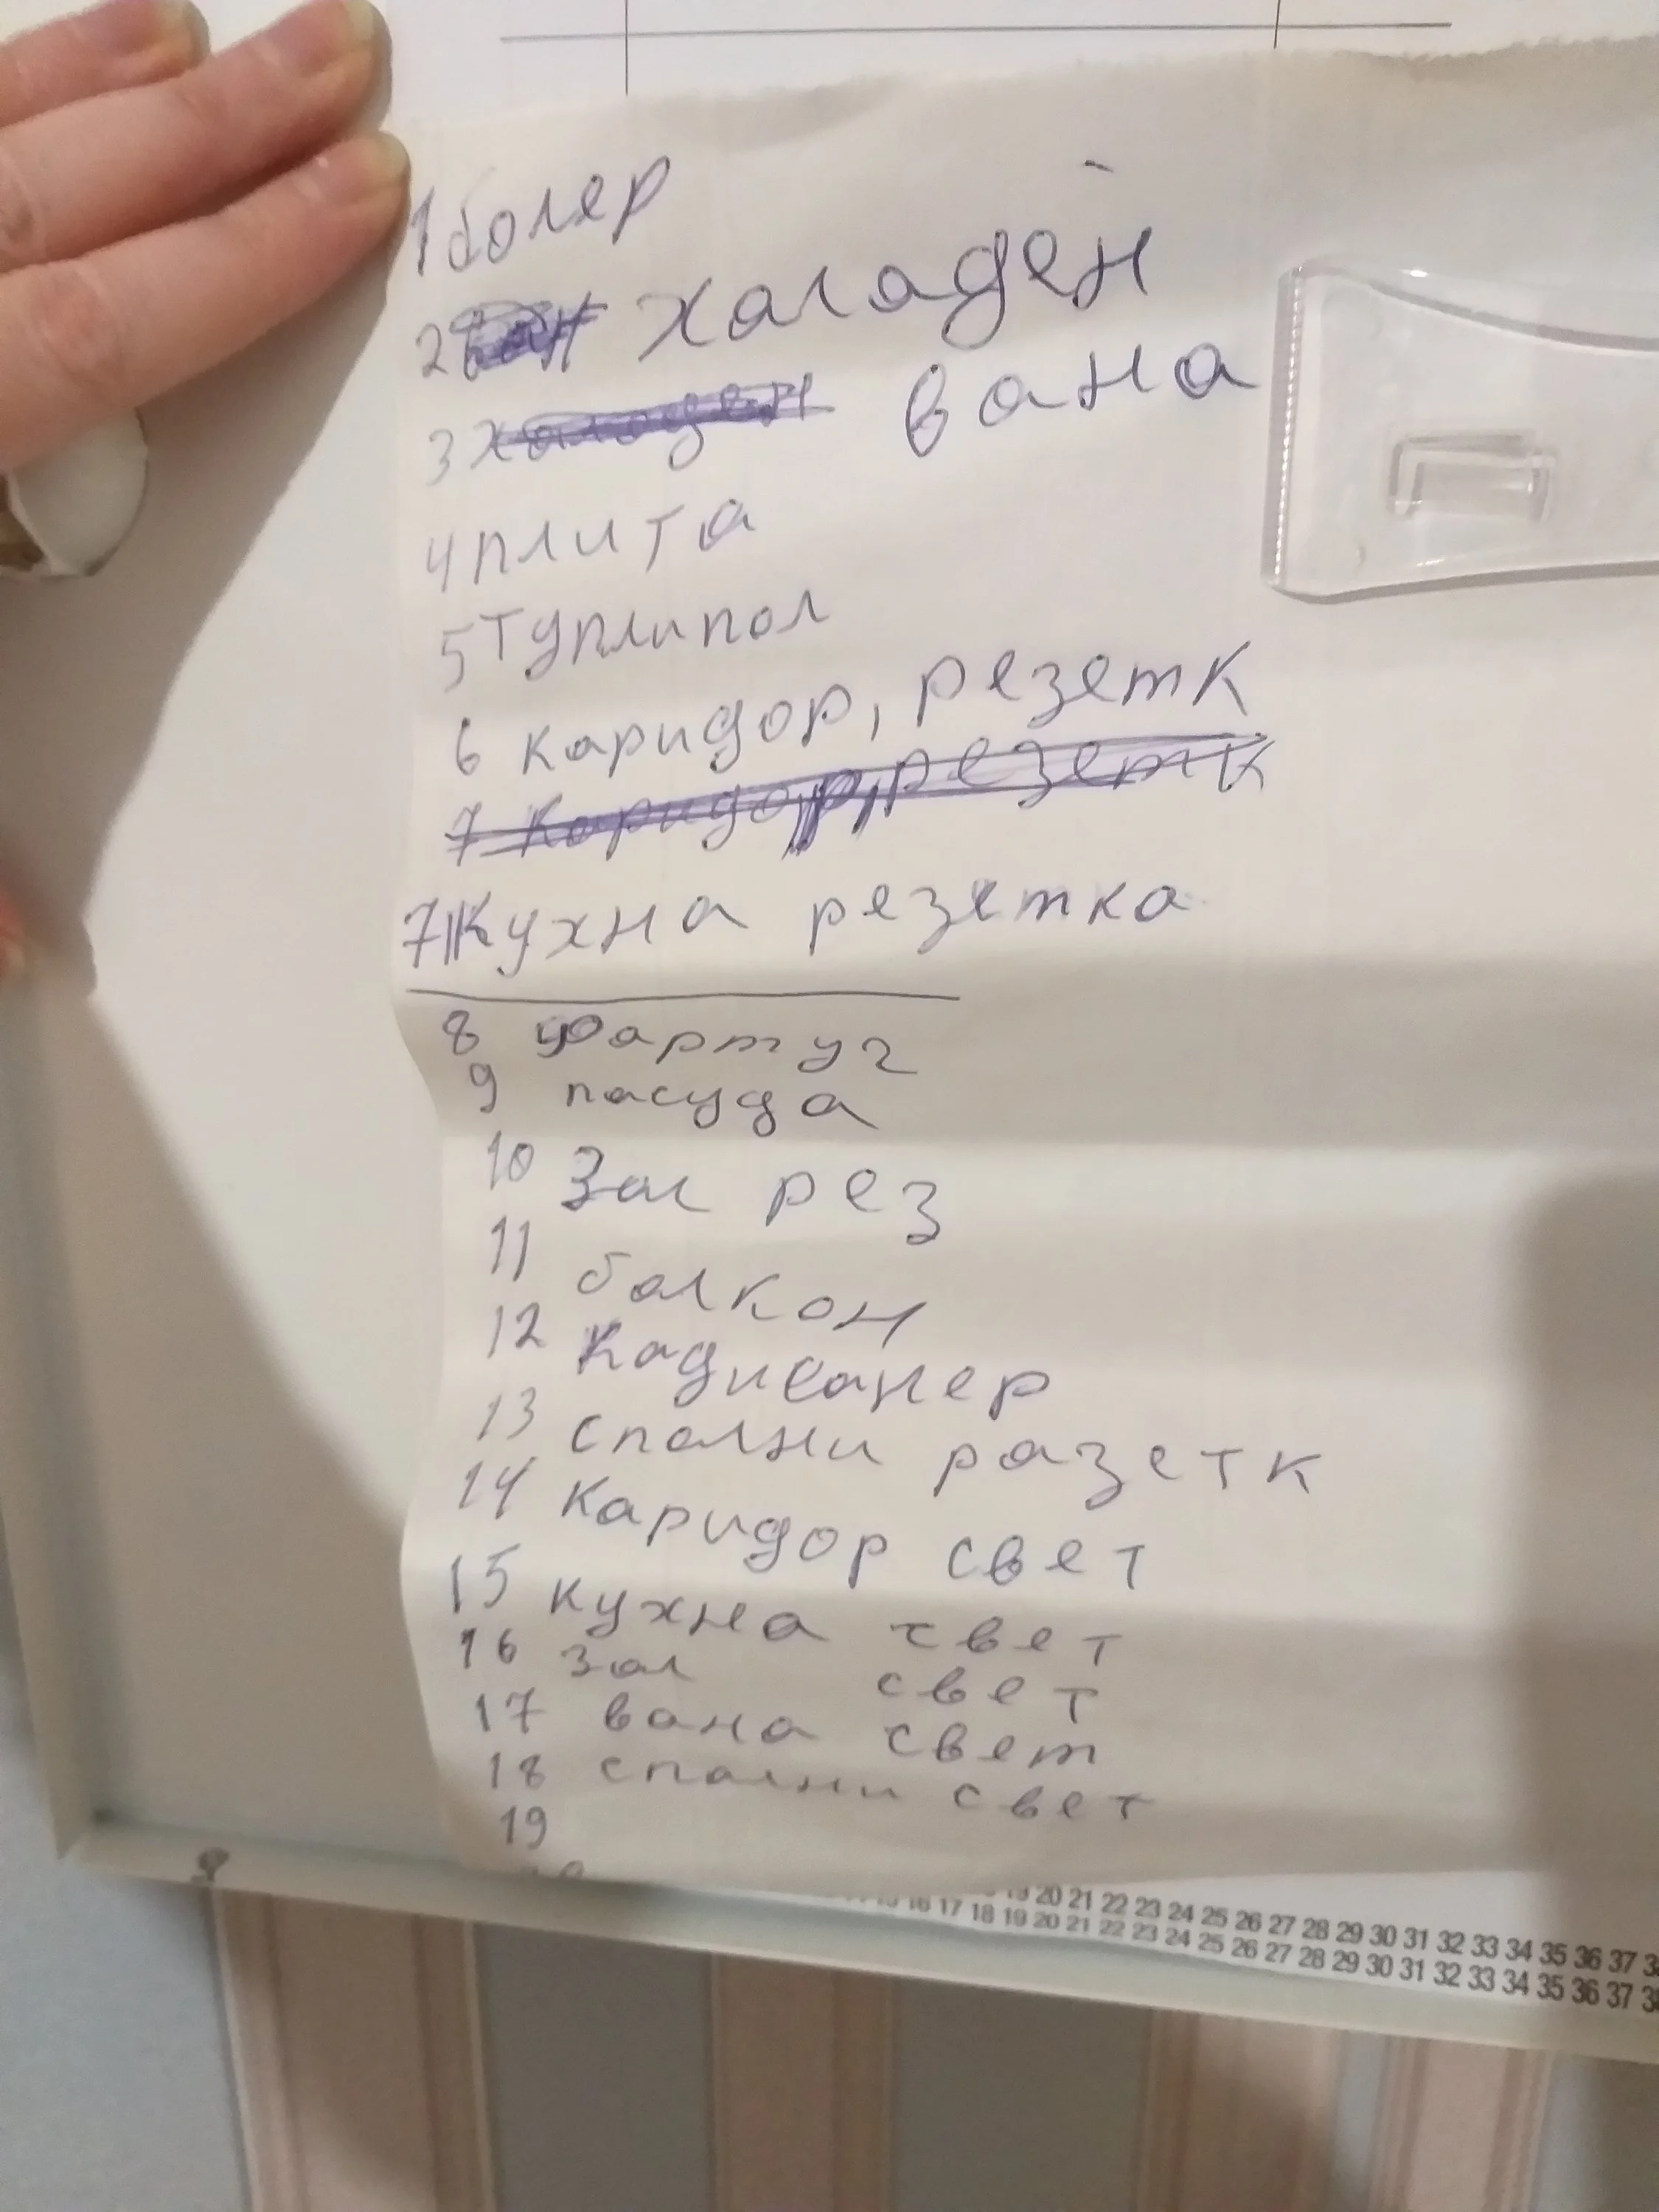 1 болер
2 халадён
3 вана
4 плита
5 туплипол
6 каридор, резетк
7 каридор, резетк
7 кухна резетка
8 фартуг
9 пасуда
10 Зал рез
11 балкон
12 Кадисанер
13 спални разетк
14 каридор свет
15 кухна свет
16 зал свет
17 вана свет
18 спални свет
19
19 20 21 22 23 24 25 26 27 28 29 30 31 32 33 34 35 36 37
16 17 18 19 20 21 22 23 24 25 26 27 28 29 30 31 32 33 34 35 36 37